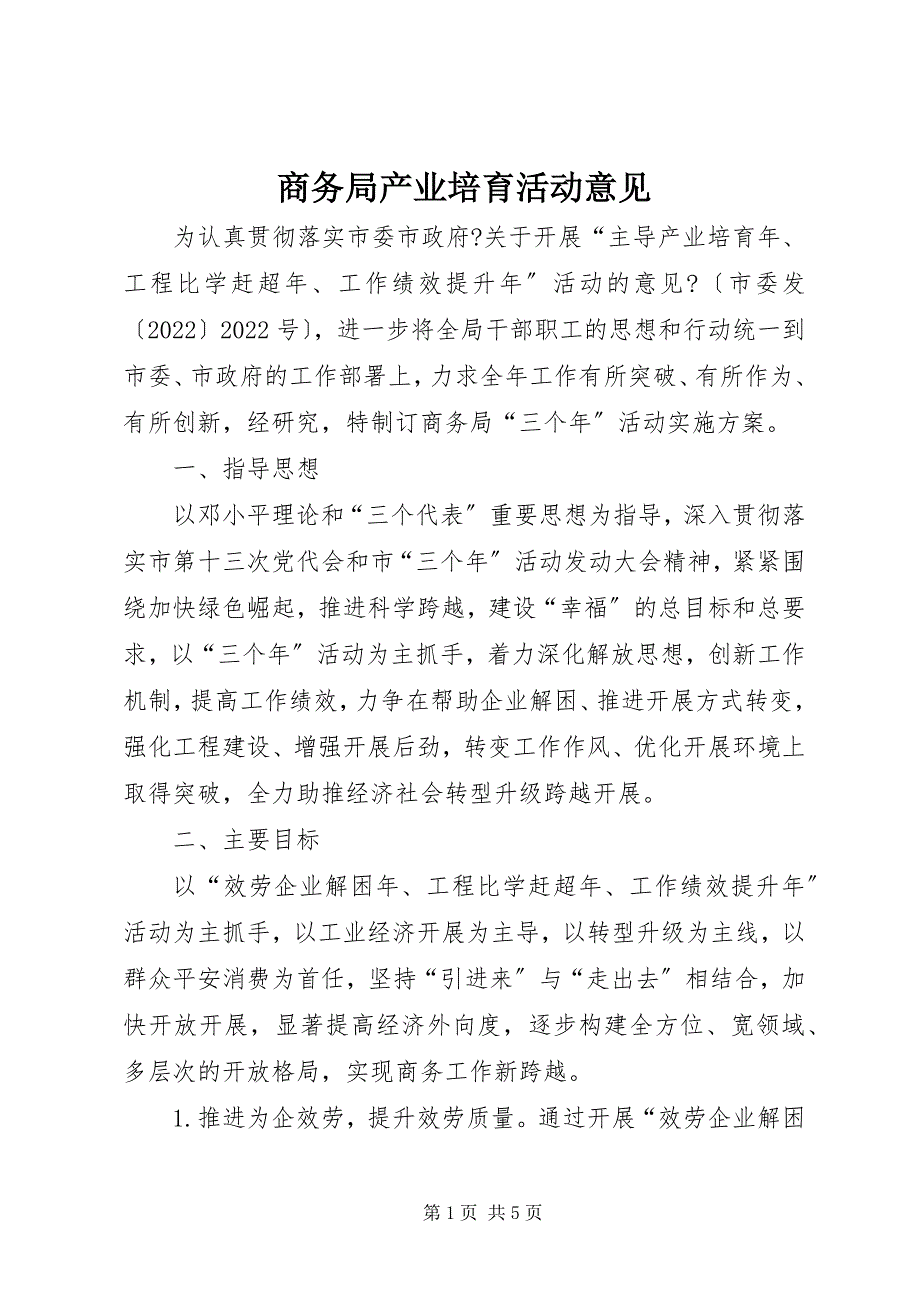 商务局产业培育活动意见
为认真贯彻落实市委市政府?关于开展“主导产业培育年、
工程比学赶超年、工作绩效提升年〞活动的意见?〔市委发
〔2022〕2022 号〕，进一步将全局干部职工的思想和行动统一到
市委、市政府的工作部署上，力求全年工作有所突破、有所作为、
有所创新，经研究，特制订商务局“三个年〞活动实施方案。
一、指导思想
以邓小平理论和“三个代表〞重要思想为指导，深入贯彻落
实市第十三次党代会和市“三个年〞活动发动大会精神，紧紧围
绕加快绿色崛起，推进科学跨越，建设“幸福〞的总目标和总要
求，以“三个年〞活动为主抓手，着力深化解放思想，创新工作
机制，提高工作绩效，力争在帮助企业解困、推进开展方式转变，
强化工程建设、增强开展后劲，转变工作作风、优化开展环境上
取得突破，全力助推经济社会转型升级跨越开展。
二、主要目标
以“效劳企业解困年、工程比学赶超年、工作绩效提升年〞
活动为主抓手，以工业经济开展为主导，以转型升级为主线，以
群众平安消费为首任，坚持“引进来〞与“走出去〞相结合，加
快开放开展，显著提高经济外向度，逐步构建全方位、宽领域、
多层次的开放格局，实现商务工作新跨越。
1.推进为企效劳，提升效劳质量。通过开展“效劳企业解困
第 1 页 共 5 页